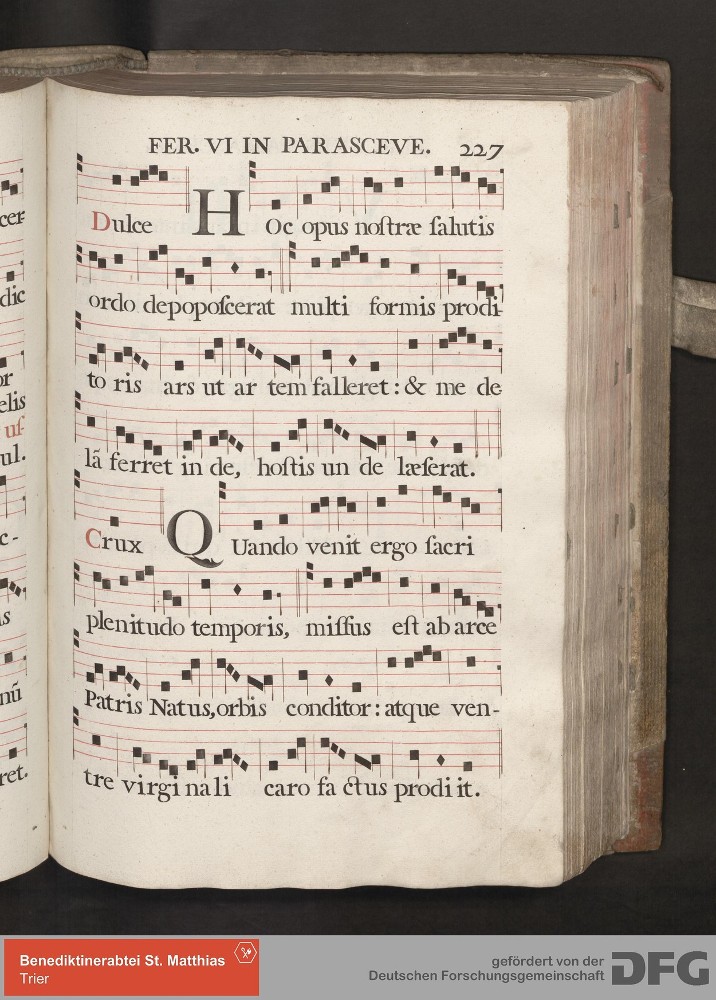 FER. VI IN PARASCEVE. 227
Dulce HOc opus noſtræ ſalutis
ordo depopoſcerat multi formis prodi-
to ris ars ut ar tem falleret : & me de
lã ferret in de, hoſtis un de læſerat.
Crux QUando venit ergo ſacri
plenitudo temporis, miſſus eſt ab arce
Patris Natus, orbis conditor : atque ven-
tre virgi na li caro fa ctus prodi it.
cer
dic
or
elis
uſ-
ul.
c-
as
nũ
ret.
Benediktinerabtei St. Matthias
Trier
gefördert von der
Deutschen Forschungsgemeinschaft
DFG